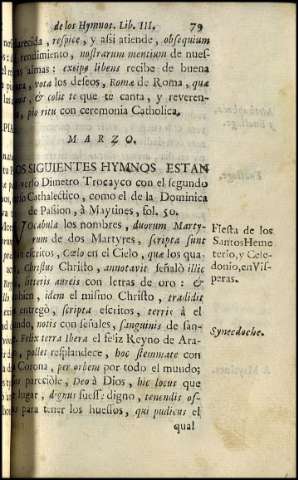 de los Hymnos. Lib. III. 79
recida, respice, y assi atiende, obsequium
rendimiento, nostrarum mentium de nues-
almas: excipe libens recibe de buena
vota los deseos, Romæ de Roma, quæ
& colit te que te canta, y reveren-
pio ritu con ceremonia Catholica.
MARZO.
OS SIGUIENTES HYMNOS ESTAN
verso Dimetro Trocayco con el segundo
Cathalectico, como el de la Dominica
de Passion, à Maytines, fol. 50.
Vocabula los nombres, duorum Marty-
rum de dos Martyres, scripta sunt
escritos, Cœlo en el Cielo, quæ los qua-
Christus Christo, annotavit señalò illic
litteris aureis con letras de oro: &
bien, idem el mismo Christo, tradidit
entregò, scripta escritos, terris à el
undo, notis con señales, sanguinis de san-
Felix terra Ibera el feliz Reyno de Ara-
pollet resplandece, hoc stemmate con
Corona, per orbem por todo el mundo;
pareciòle, Deo à Dios, hic locus que
lugar, dignus fuesse digno, tenendis os-
para tener los huessos, qui pudicus el
qual
Fiesta de los
Santos Heme
terio, y Cele-
donio, en Vis-
peras.
Synecdoche.